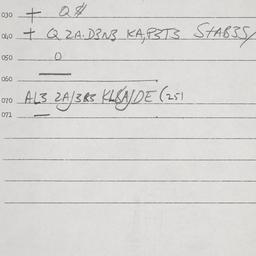 030 + Q
040 + Q 2A.D3N3 KA,P3T3 STAB35/
050 0
060
070 AL3 2A/3R3 KLBA/DE (251
071